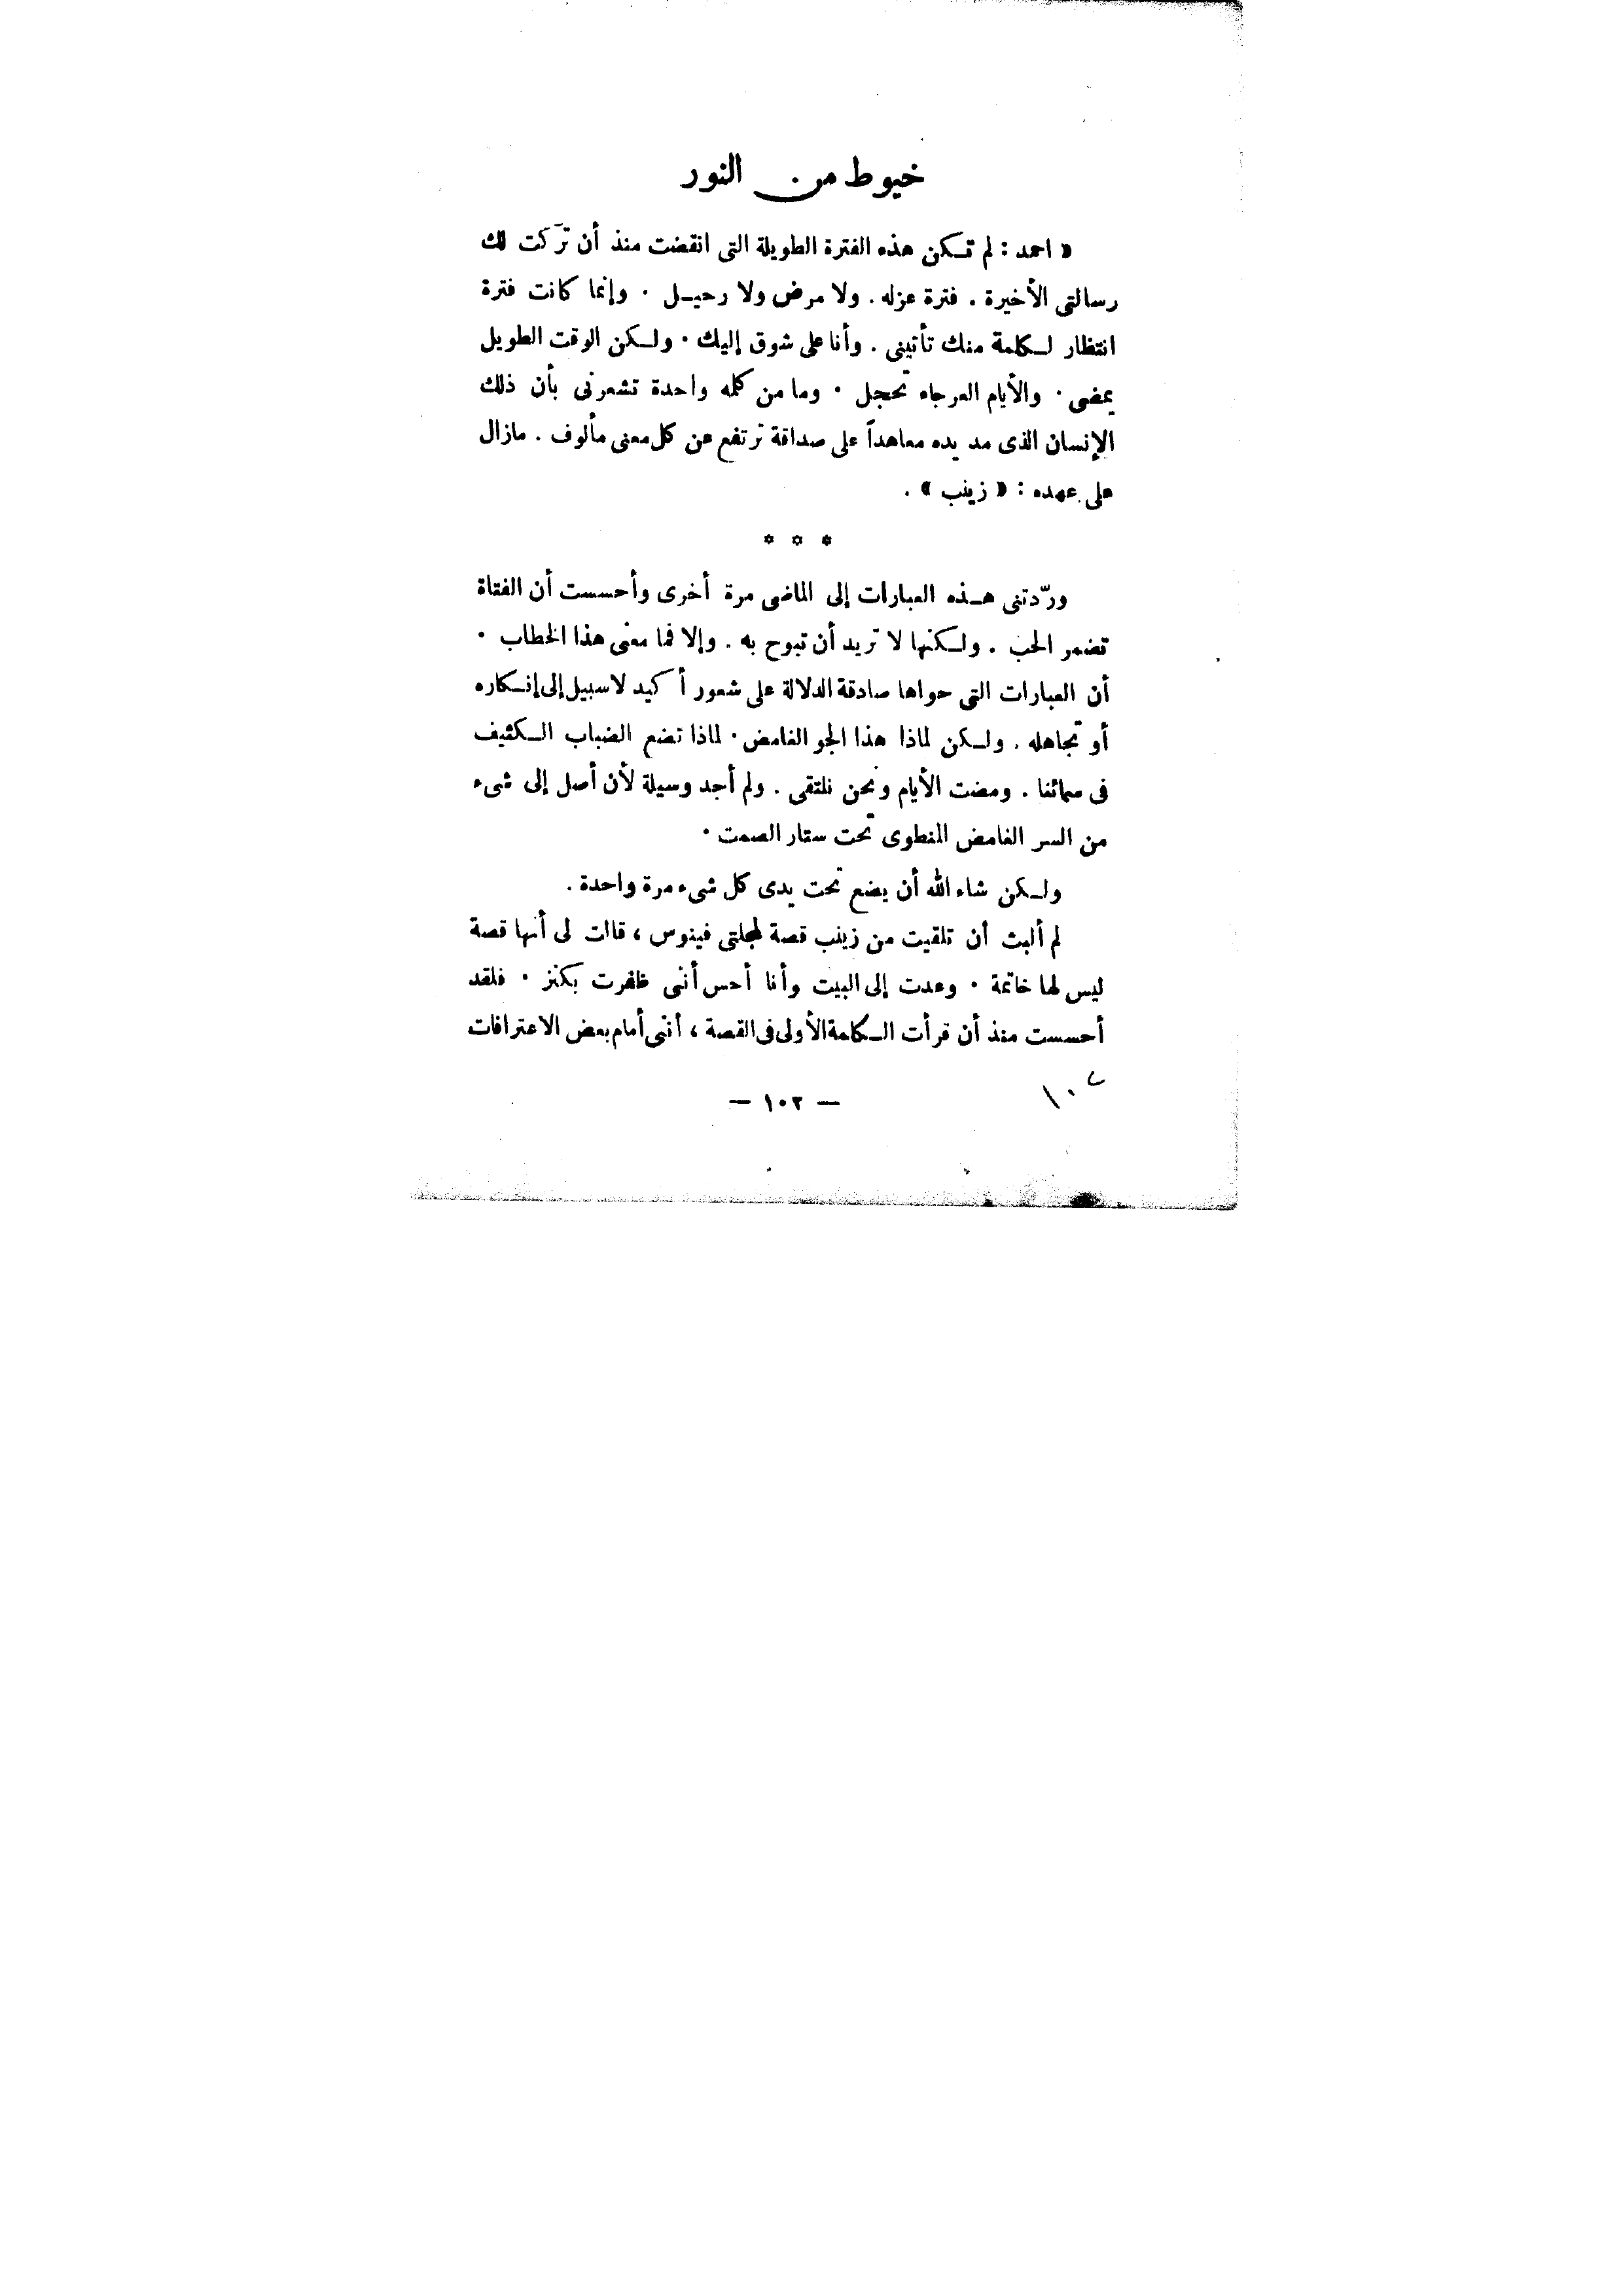 خيوط من النور
« احمد : لم تكن هذه الفترة الطويلة التى انقضت منذ أن تركت لك
رسالتى الأخيرة . فترة عزله . ولا مرض ولا رحيل . وإنما كانت فترة
انتظار لكلمة منك تأتينى . وأنا على شوق إليك . ولكن الوقت الطويل
يمضى . والأيام العرجاء تحجل . وما من كلمه واحدة تشعرنى بأن ذلك
الإنسان الذى مد يده معاهداً على صداقة ترتفع عن كل معنى مألوف . مازال
على عهده : « زينب » .
* * *
وردّتنى هذه العبارات إلى الماضى مرة أخرى وأحسست أن الفتاة
تضمر الحب . ولكنها لا تريد أن تبوح به . وإلا فما معنى هذا الخطاب .
أن العبارات التى حواها صادقة الدلالة على شعور أكيد لاسبيل إلى إنكاره
أو تجاهله . ولكن لماذا هذا الجو الغامض . لماذا تضع الضباب الكثيف
فى سمائنا . ومضت الأيام ونحن نلتقى . ولم أجد وسيلة لأن أصل إلى شىء
من السر الغامض المنطوى تحت ستار الصمت .
ولكن شاء الله أن يضع تحت يدى كل شىء مرة واحدة .
لم ألبث أن تلقيت من زينب قصة لمجلتى فينوس ، قالت لى أنها قصة
ليس لها خاتمة . وعدت إلى البيت وأنا أحس أننى ظفرت بكنز . فلقد
أحسست منذ أن قرأت الكلمة الأولى فى القصة ، أننى أمام بعض الاعترافات
١٠٢
— ١٠٢ —